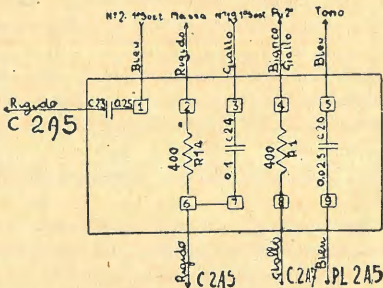 N°2. 1ª Sost Massa N°1ª 1ª Sost P. 2ª Tono
Bleu
Rigido
Giallo
Bianco
Giallo
Bleu
Rigido
C23 0.25
1 2 3 4 5
C 2A5
400
R14
0.1
C24
400
R1
0.025
C20
6 7 8 9
Rigido
C 2A5
Giallo
C.2A7
Bleu
PL 2A5